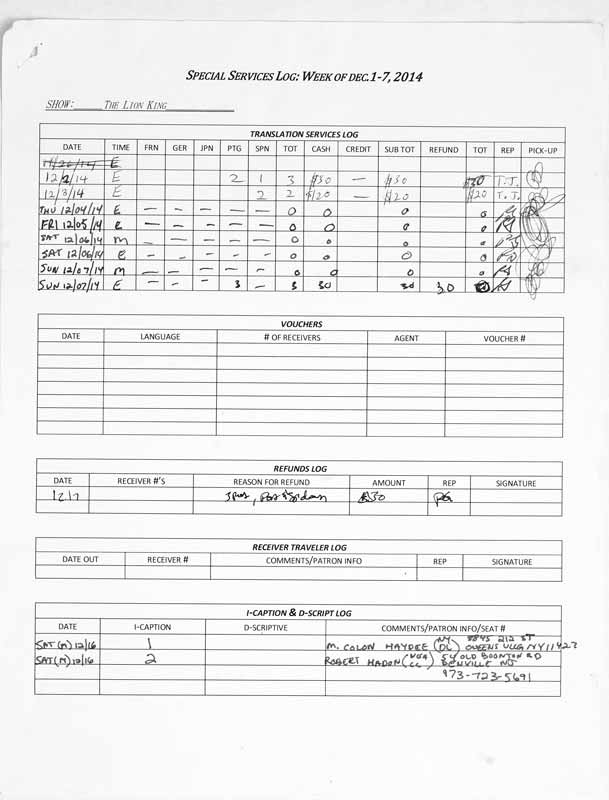 SPECIAL SERVICES LOG: WEEK OF DEC.1-7, 2014
SHOW: THE LION KING
TRANSLATION SERVICES LOG
DATE TIME FRN GER JPN PTG SPN TOT CASH CREDIT SUB TOT REFUND TOT REP PICK-UP
E
12/2/14 E 2 1 3 $30 — $30 $30 T.J.
12/3/14 E 2 2 $20 — $20 $20 T.J.
THU 12/04/14 E — — — — — 0 0 0 0
FRI 12/05/14 E — — — — — 0 0 0 0
SAT 12/06/14 M — — — — — 0 0 0 0
SAT 12/06/14 E — — — - - 0 0 0 0
SUN 12/07/14 M — — — — — 0 0 0 0
SUN 12/07/14 E — — — 3 — 3 30 30 30
VOUCHERS
DATE LANGUAGE # OF RECEIVERS AGENT VOUCHER #
REFUNDS LOG
DATE RECEIVER #'S REASON FOR REFUND AMOUNT REP SIGNATURE
12/7 $30 PG
RECEIVER TRAVELER LOG
DATE OUT RECEIVER # COMMENTS/PATRON INFO REP SIGNATURE
I-CAPTION & D-SCRIPT LOG
DATE I-CAPTION D-SCRIPTIVE COMMENTS/PATRON INFO/SEAT #
SAT(M) 12/6 1 M. COLON HAYDEE (NY DL) 8845 212 ST QUEENS VLLG NY 11427
SAT(M) 12/6 2 ROBERT HADON 54 OLD BOONTON RD DENVILLE NJ
973-723-5691